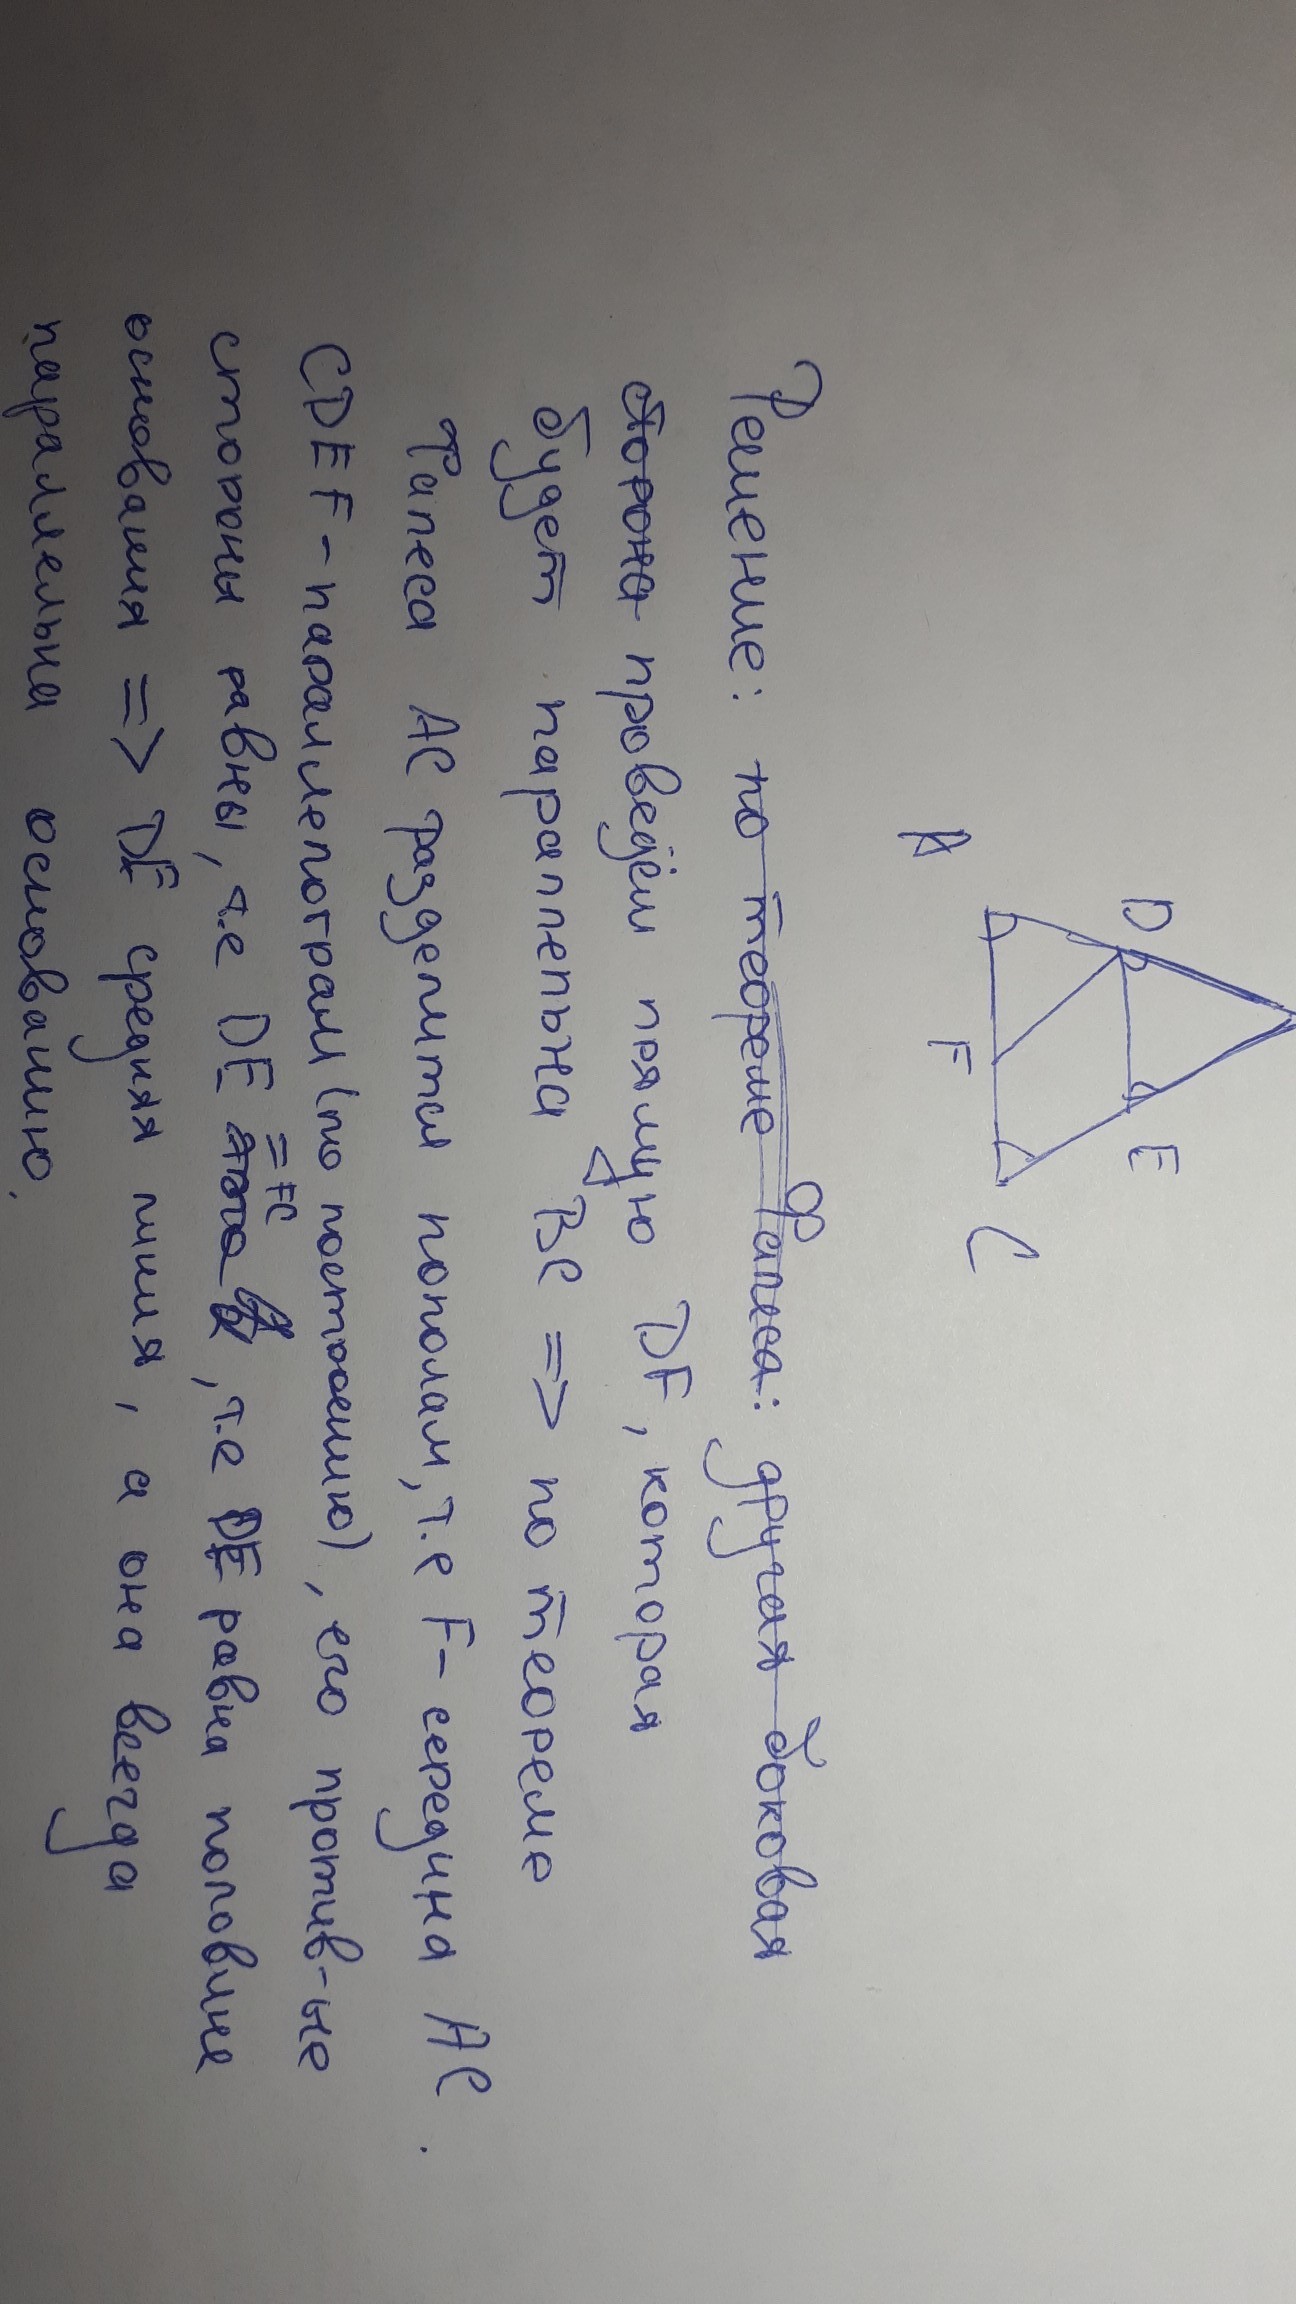 D E
A F C
Решение: по теореме Фалеса: другая боковая
сторона проведём прямую DF, которая
будет параллельна BC => по теореме
Фалеса AC разделится пополам, т.е F - середина AC.
CDEF - параллелограм (по построению), его против-ые
стороны равны, т.е DE = FC, т.е DE равна половине
основания => DE средняя линия, а она всегда
параллельна основанию.